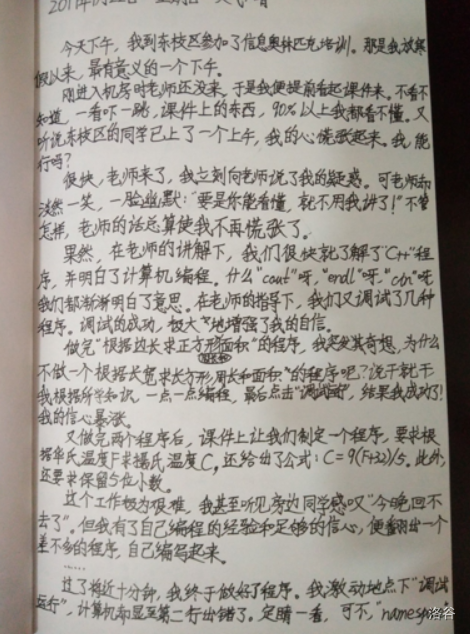 今天下午，我到东校区参加了信息奥林匹克培训。那是我放寒
假以来，最有意义的一个下午。
刚进入机房时老师还没来，于是我便提前看起课件来。不看不
知道，一看吓一跳，课件上的东西，90%以上我都看不懂。又
听说东校区的同学已上了一个上午，我的心慌张起来。我，能
行吗？
很快，老师来了，我立刻向老师说了我的疑惑。可老师却
淡然一笑，一脸幽默："要是你能看懂，就不用我讲了！"不管
怎样，老师的话总算使我不再慌张了。
果然，在老师的讲解下，我们很快就了解了"C++"程
序，并明白了计算机编程。什么"cout"呀，"endl"呀，"cin"呀
我们都渐渐明白了意思。在老师的指导下，我们又调试了几种
程序。调试的成功，极大地增强了我的自信。
做完"根据边长求正方形面积"的程序，我突发其奇想，为什么
不做一个根据长宽求长方形周长和面积"的程序吧？说干就干
我根据所学知识，一点一点编程，最后点击"调试"，结果我成功了！
我的信心暴涨。
又做完两个程序后，课件上让我们制定一个程序，要求根
据华氏温度F求摄氏温度C，还给出了公式：C=9(F+32)/5。此外，
还要求保留5位小数。
这个工作极为艰难，我甚至听见旁边同学感叹"今晚回不
去了"。但我有了自己编程的经验和足够的信心，便翻出一个
差不多的程序，自己编写起来。
……
过了将近十分钟，我终于做好了程序。我激动地点下"调试
运行"，计算机却显示第二行出错了。定睛一看，可不，"namesp
洛谷